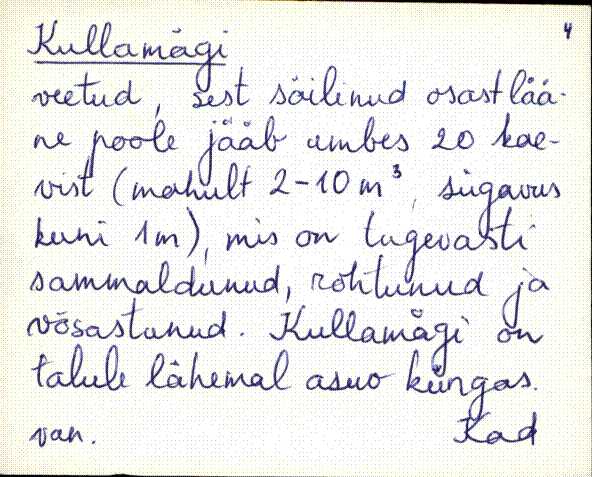 4
Kullamägi
veetud, sest säilinud osast lää-
ne poole jääb umbes 20 kae-
vist (mahult 2-10 m³, sügavus
kuni 1m), mis on tugevasti
sammaldunud, rohtunud ja
võsastunud. Kullamägi on
talule lähemal asuv küngas.
van. Kad